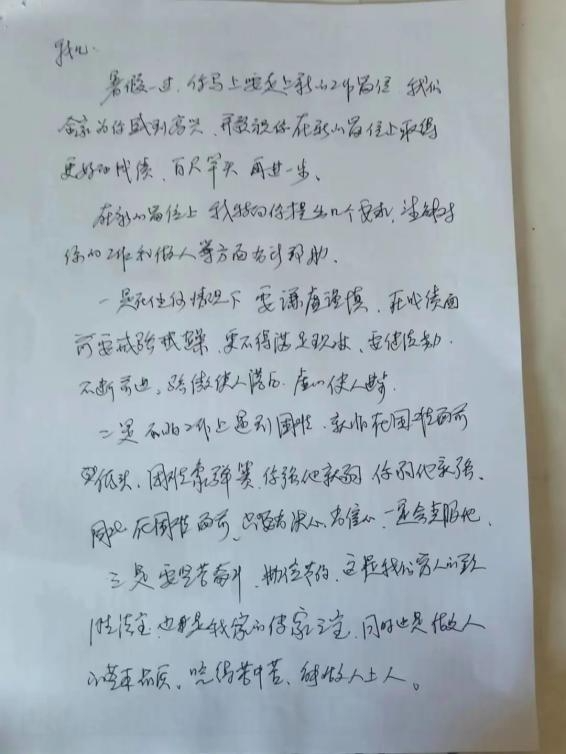 我儿:
暑假一过,你马上要走上新的工作岗位,我们
全家为你感到高兴,并敬祝你在新的岗位上取得
更好的成绩,百尺竿头,再进一步。
在新的岗位上,我特向你提出几个要求,
你的工作和做人等方面有所帮助。
一是在任何情况下要谦虚谨慎,在成绩面
前要戒骄戒躁,更不得满足现状,要继续努力,
不断前进。骄傲使人落后,虚心使人进步。
二是不怕工作上遇到困难,就怕在困难面前
低头,困难象弹簧,你强他就弱,你弱他就强。
因此,在困难面前,只要有决心,有信心,一定会克服他。
三是要艰苦奋斗,勤俭节约,这是我们穷人的致
胜法宝,也是我家的传家之宝,同时也是做人
的基本品质。吃得苦中苦,能做人上人。